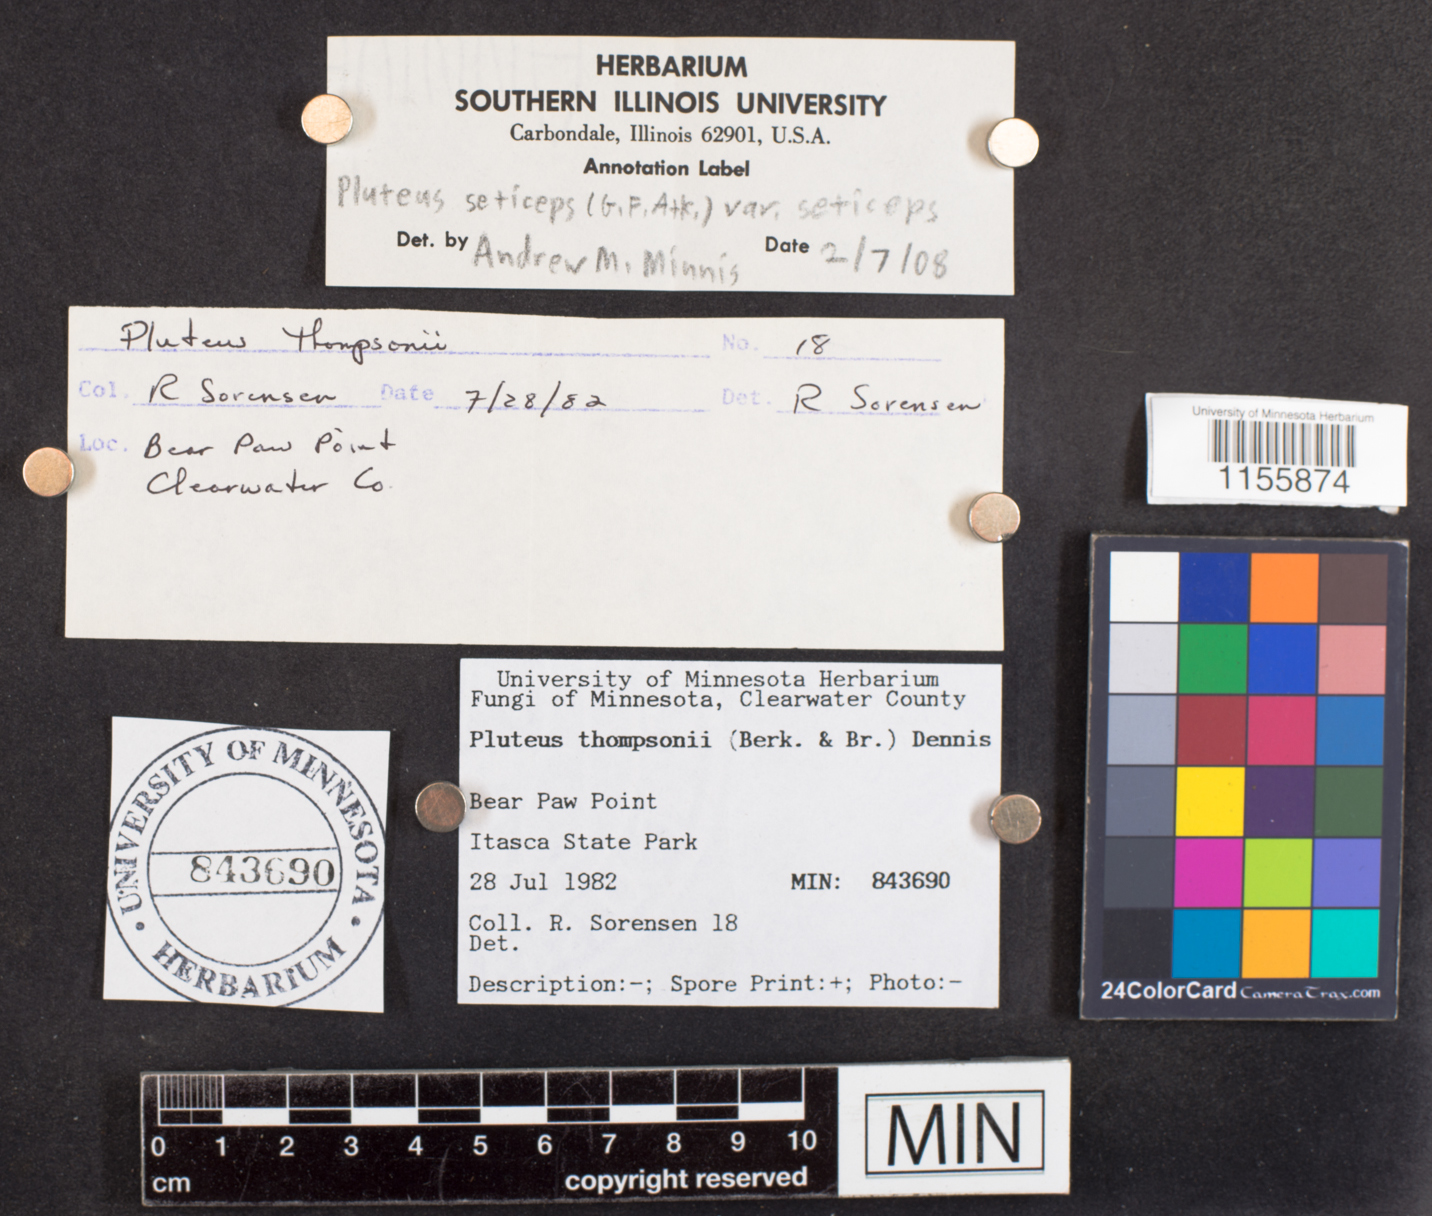 HERBARIUM
SOUTHERN ILLINOIS UNIVERSITY
Carbondale, Illinois 62901, U.S.A.
Annotation Label
Pluteus seticeps (G.F. Atk.) var. seticeps
Det. by Andrew M. Minnis Date 2/7/08
Pluteus thompsonii No. 18
Col. R Sorensen Date 7/28/82 Det. R Sorensen
Loc. Bear Paw Point
Clearwater Co.
University of Minnesota Herbarium
1155874
University of Minnesota Herbarium
Fungi of Minnesota, Clearwater County
Pluteus thompsonii (Berk. & Br.) Dennis
Bear Paw Point
Itasca State Park
28 Jul 1982 MIN: 843690
Coll. R. Sorensen 18
Det.
Description:-; Spore Print:+; Photo:-
UNIVERSITY OF MINNESOTA
843690
HERBARIUM
24ColorCard CameraTrax.com
0 1 2 3 4 5 6 7 8 9 10
cm copyright reserved
MIN